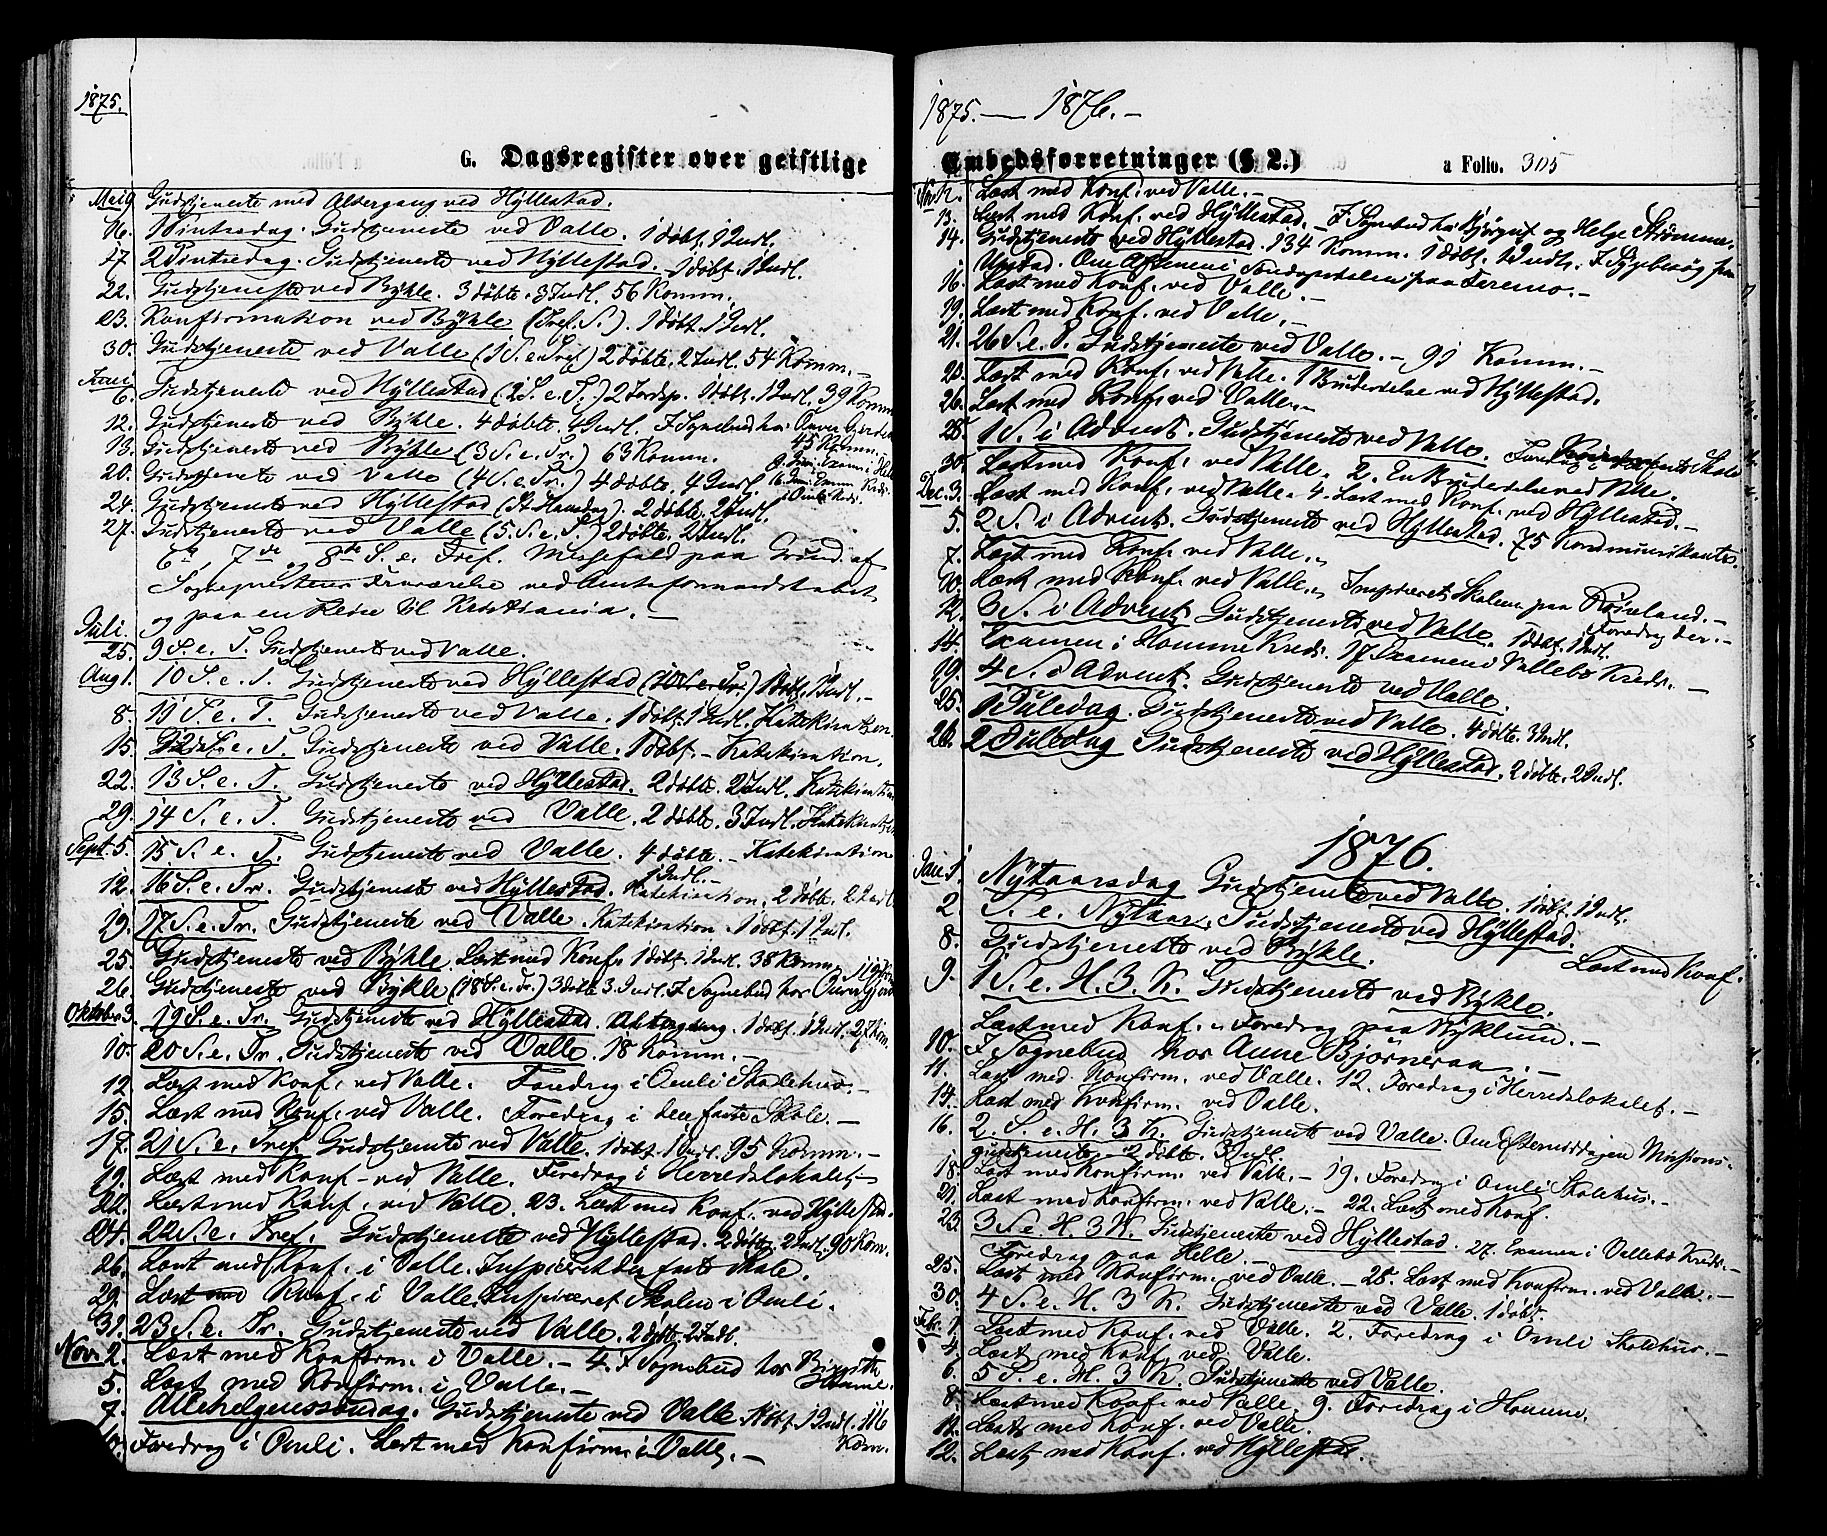 1875.
G. Dagsregister over geistlige
Mai 9 Gudstjeneste med Altergang ved Hyllestad.
16. 1 Pintsedag. Gudstjeneste ved Valle. 1 døbt. 1 Indl.
17 2 Pintsedag. Gudstjeneste ved Hyllestad. 1 døbt. 1 Indl.
22. Gudstjeneste ved Bykle. 3 døbte. 3 Indl. 56 Komm.
23. Konfirmation ved Bykle (Tref. S.). 1 døbt. 1 Indl.
30. Gudstjeneste ved Valle (1 S. e. Tref.) 2 døbte, 2 Indl. 54 Komm. —
Juni 6. Gudstjeneste ved Hyllestad (2 S. e. T.) 2 Jordsp. 1 døbt. 1 Indl. 39 Komm
12. Gudstjeneste ved Bykle. 4 døbte, 4 Indl. I Sognebud hos
45 Komm.
13. Gudstjeneste ved Bykle (3 S. e. Tr.) 63 Komm.
20. Gudstjeneste ved Valle (4 S. e. Tr.) 4 døbte, 4 Indl.
24. Gudstjeneste ved Hyllestad (St. Hansdag). 2 døbte. 2 Indl.
27. Gudstjeneste ved Valle (5. S. e. T.) 2 døbte, 2 Indl.
6te, 7de og 8de S. e. Tref. Messefald paa Grund af
Sognepræstens Nærværelse ved Amtsformandskabet
og paa en Reise til Kristiania. —
Juli. 25. 9 S. e. T. Gudstjeneste ved Valle.
Aug 1. 10 S. e. T. Gudstjeneste ved Hyllestad (10 S. e. Tr.) 1 døbt. 1 Indl. —
8. 11 S. e. T. Gudstjeneste ved Valle. 1 døbt. 1 Indl. Katekisation.
15. 12 S. e. T. Gudstjeneste ved Valle. 1 døbt. — Katekisation.
22. 13 S. e. T. Gudstjeneste ved Hyllestad. 2 døbte. 2 Indl. Katekisation
29. 14 S. e. T. Gudstjeneste ved Valle. 2 døbte. 3 Indl. Katekisation
Sept. 5. 15 S. e. T. Gudstjeneste ved Valle. 4 døbte. — Katekisation
1 Indl. —
12. 16 S. e. Tr. Gudstjeneste ved Hyllestad. Katekisation. 2 døbte. 2 Indl.
19. 17 S. e. Tr. Gudstjeneste ved Valle. Katekisation. 1 døbt. 1 Indl.
25. Gudstjeneste ved Bykle. Læst med Konf. 1 døbt. 1 Indl. 38 Komm.
26. Gudstjeneste ved Bykle (18 S. e. Tr.) 3 døbte 3 Indl. I Sognebud hos
Oktober 3. 19 S. e. Tr. Gudstjeneste ved Hyllestad. Altergang. 1 døbt. 1 Indl. 27 Kom.
10. 20 S. e. Tr. Gudstjeneste ved Valle. 18 Komm. —
12 Læst med Konf. ved Valle. Foredrag i Omli Skolehus. —
15. Læst med Konf. ved Valle. Foredrag i den faste Skole. —
17. 21 S. e. Tref. Gudstjeneste ved Valle. 1 døbt. 1 Indl. 95 Komm. —
19. Læst med Konf. ved Valle. Foredrag i Herredslokalet. —
22. Læst med Konf. ved Valle. 23. Læst med Konf. ved Hyllestad.
24. 22 S. e. Tref. Gudstjeneste ved Hyllestad. 2 døbte. 2 Indl. 90 Kom.
26. Læst med Konf. i Valle. Inspiceret den faste Skole.
29. Læst med Konf. i Valle. Inspiceret Skolen i Omli.
31. 23 S. e. Tr. Gudstjeneste ved Valle. 2 døbte. 2 Indl.
Nov. 2. Læst med Konfirm. i Valle. — 4. I Sognebud hos Birgitte
Homme.
5. Læst med Konfirm. i Valle. —
7. Allehelgenssøndag. Gudstjeneste ved Valle. 1 døbt. 1 Indl. 116
Kom.
10. Foredrag i Omli. Læst med Konfirm. i Valle. —
1875. — 1876. —
Embedsforretninger (§ 2.) a Folio. 305
Nov. 12. Læst med Konf. ved Valle. —
13. Læst med Konf. ved Hyllestad. — I Sognebud hos og Helge Strømme.
14. Gudstjeneste ved Hyllestad. 134 Komm. 1 døbt. 1 Indl. I Sygebesøg
Om Aftenen paa
16. Læst med Konf. ved Valle. —
19. Læst med Konf. ved Valle. —
21. 26 S. e. P. Gudstjeneste ved Valle. — 91 Komm. —
23. Læst med Konf. ved Valle. 1 Budeielse ved Hyllestad.
26. Læst med Konf. ved Valle. —
28. 1 S. i Advent. Gudstjeneste ved Valle. Foredrag i Skole
30. Læst med Konf. ved Valle. 2. En ved Valle.
Dec. 3. Læst med Konf. ved Valle. 4. Læst med Konf. ved Hyllestad. —
5. 2 S. i Advent. Gudstjeneste ved Hyllestad. 75 Kommunikanter.
7. Læst med Konf. ved Valle. „
10. Læst med Konf. ved Valle. „ Inspiceret Skolen paa Rysland. —
Foredrag der. —
12. 3 S. i Advent. Gudstjeneste ved Valle. 1 døbt. 1 Indl.
14. Examen i Homme Kreds. 17 Examen i Vallebø Kreds. —
19. 4 S. i Advent. Gudstjeneste ved Valle.
25. 1 Juledag. Gudstjeneste ved Valle. 4 døbte. 3 Indl.
26. 2 Juledag Gudstjeneste ved Hyllestad. 2 døbte. 2 Indl.
1876.
Jan. 1. Nytaarsdag Gudstjeneste ved Valle. 1 døbt. 1 Indl.
2 S. e. Nytaar. Gudstjeneste ved Hyllestad.
8. Gudstjeneste ved Bykle. Læst med Konf.
9. 1 S. e. H. 3 K. Gudstjeneste ved Bykle.
Læst med Konf. „ Foredrag paa Nyklund. —
10. I Sognebud hos Anne Bjørneraa. —
11. Læst med Konfirm. ved Valle. 12. Foredrag i Herredslokalet. —
14. Læst med Konfirm. ved Valle.
16. 2. S. e. H. 3 K. Gudstjeneste ved Valle. Om Eftermiddagen Missions-
gudstjeneste. — 2 døbte. 3 Indl.
18. Læst med Konfirm. ved Valle. — 19. Foredrag i Omli Skolehus. —
21. Læst med Konfirm. ved Valle. — 22. Læst med Konf.
23. 3 S. e. H. 3 K. Gudstjeneste ved Hyllestad. 27. Examen i Vallebø Kreds. —
Foredrag paa Helle. —
25. Læst med Konfirm. ved Valle. — 28. Læst med Konfirm. ved Valle. —
30. 4 S. e. H. 3 K. Gudstjeneste ved Valle. 1 døbt.
Febr. 1. Læst med Konf. ved Valle. 2. Foredrag i Omli Skolehus. —
4. Læst med Konf. ved Valle.
6. 5 S. e. H. 3 K. Gudstjeneste ved Valle.
8. Læst med Konf. ved Valle. 9. Foredrag i Homme.
11. Læst med Konf. ved Valle.
12. Læst med Konf. ved Hyllestad.